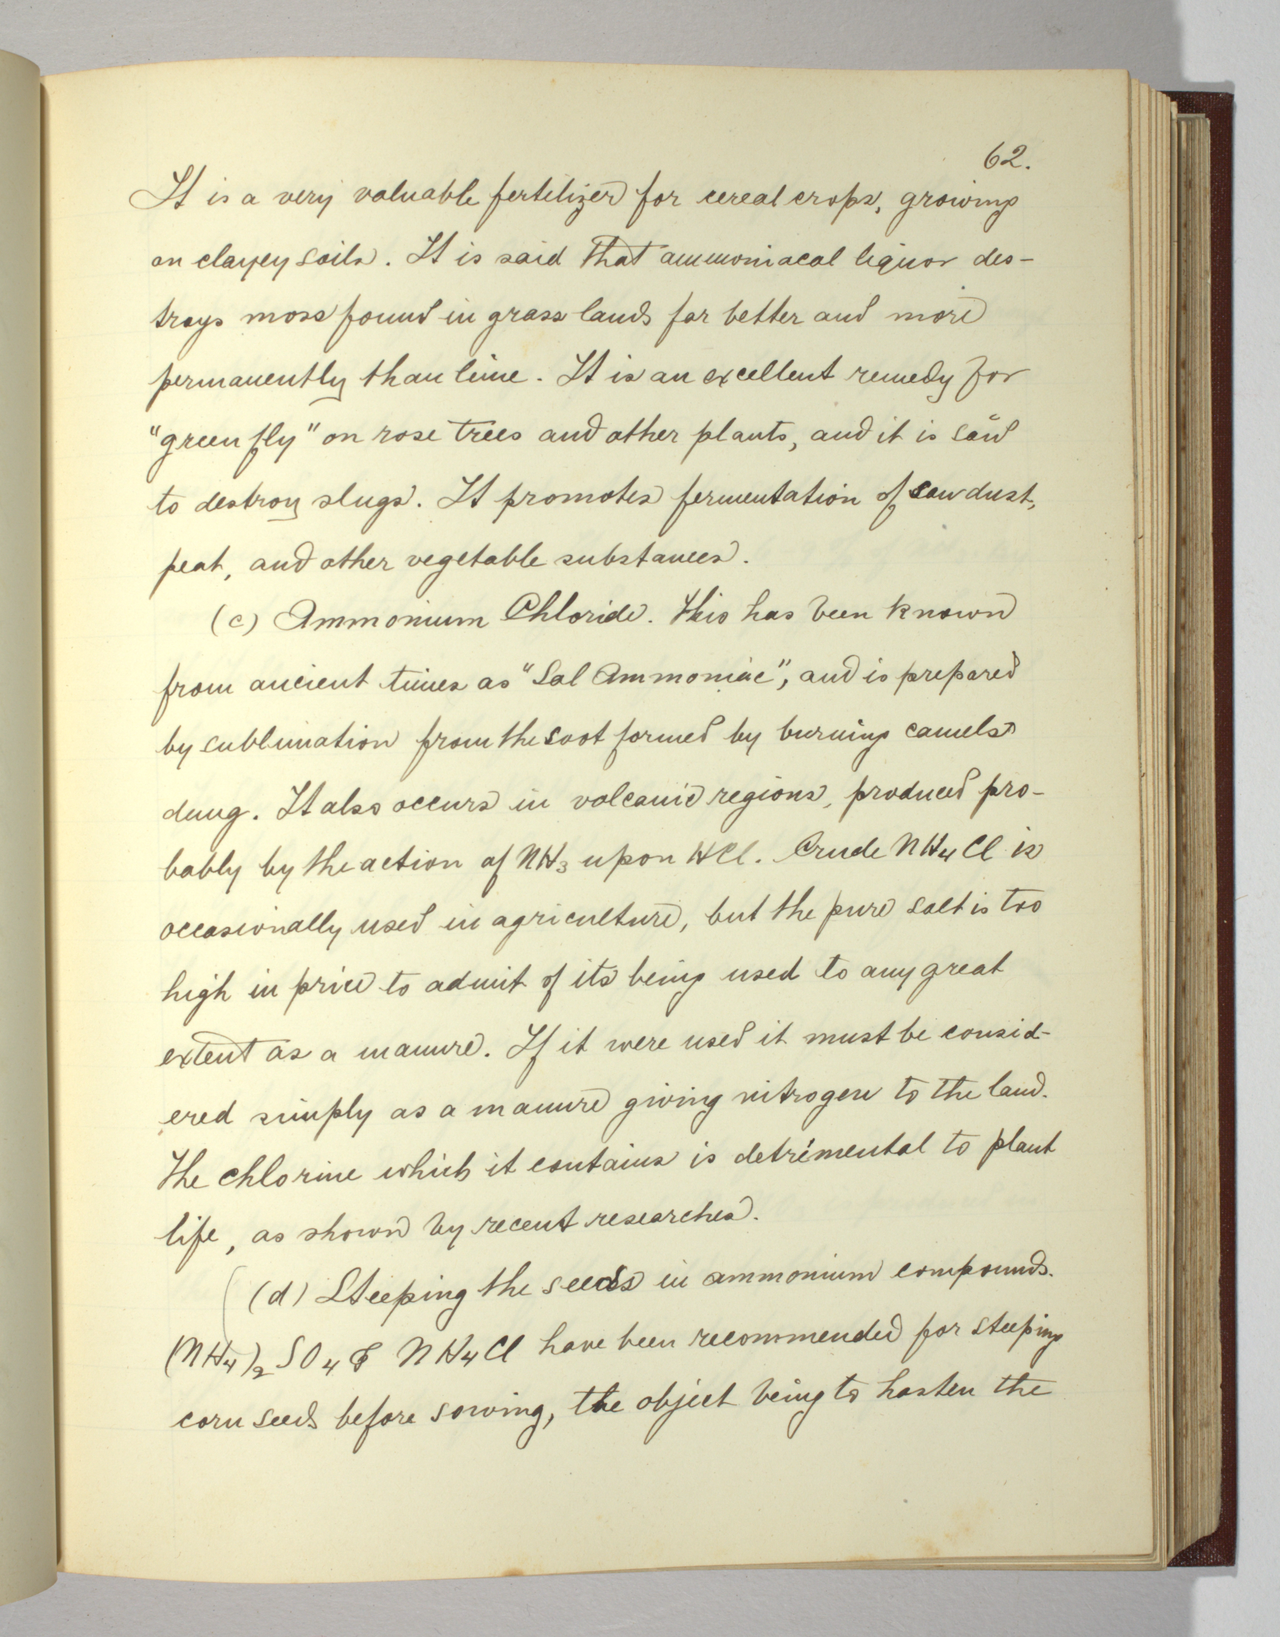 62.
It is a very valuable fertilizer for cereal crops, growing
on clayey soils. It is said that ammoniacal liquor des-
troys moss found in grass lands far better and more
permanently than lime. It is an excellent remedy for
"green fly" on rose trees and other plants, and it is said
to destroy slugs. It promotes fermentation of sawdust,
peat, and other vegetable substances.
(c) Ammonium Chloride. This has been known
from ancient times as "Sal Ammoniac", and is prepared
by sublimation from the soot formed by burning camels
dung. It also occurs in volcanic regions, produced pro-
bably by the action of NH₃ upon HCl. Crude NH₄Cl is
occasionally used in agriculture, but the pure salt is too
high in price to admit of its being used to any great
extent as a manure. If it were used it must be consid-
ered simply as a manure giving nitrogen to the land.
The chlorine which it contains is detrimental to plant
life, as shown by recent researches.
(d) Steeping the seeds in ammonium compounds.
(NH₄)₂SO₄ & NH₄Cl have been recommended for steeping
corn seeds before sowing, the object being to hasten the